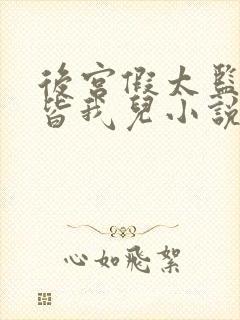 後宮假太監
皆我兒小説
心如飛絮